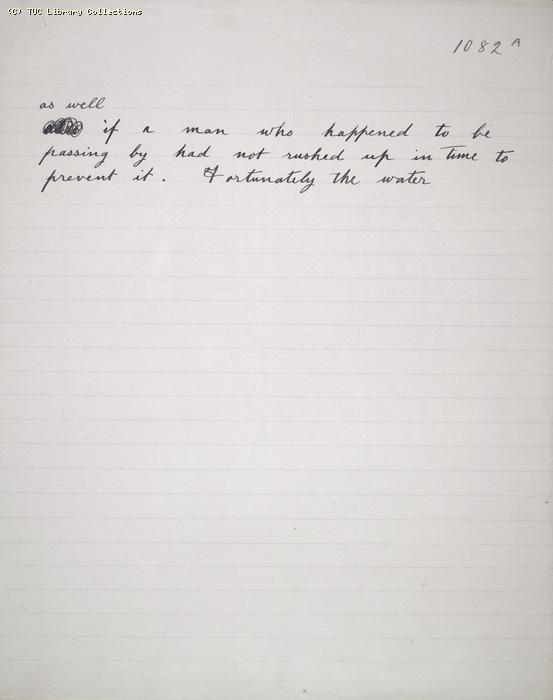 (C) TUC Library Collections
1082 A
as well
if a man who happened to be
passing by had not rushed up in time to
prevent it. Fortunately the water